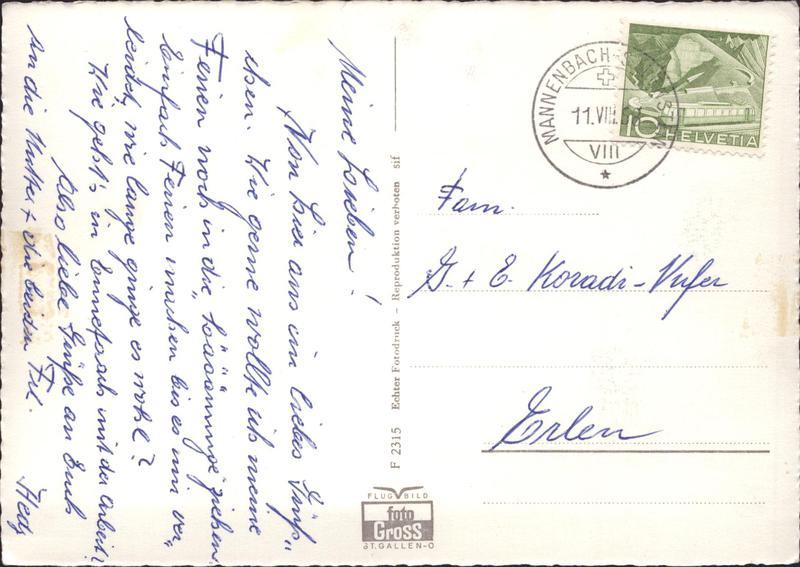 Meine Lieben!
Von hier aus ein liebes Grüß„
chen. Wie gerne wollte ich meine
Ferien noch in die „ hinaus ziehen.
Einfach Ferien machen bis es mir ver„
leidet, wie lange ginge es wohl?
Wie geht's in mit der Arbeit?
Also liebe Grüße an Euch
an die Mutter + die beiden Frl.
Hedy
F 2315 Echter Fotodruck - Reproduktion verboten sif
FLUG BILD
foto
Gross
ST. GALLEN-O
MANNENBACH-
11.VIII.
VIII
10 HELVETIA
Fam.
G. + E. Koradi-Nufer
Erlen